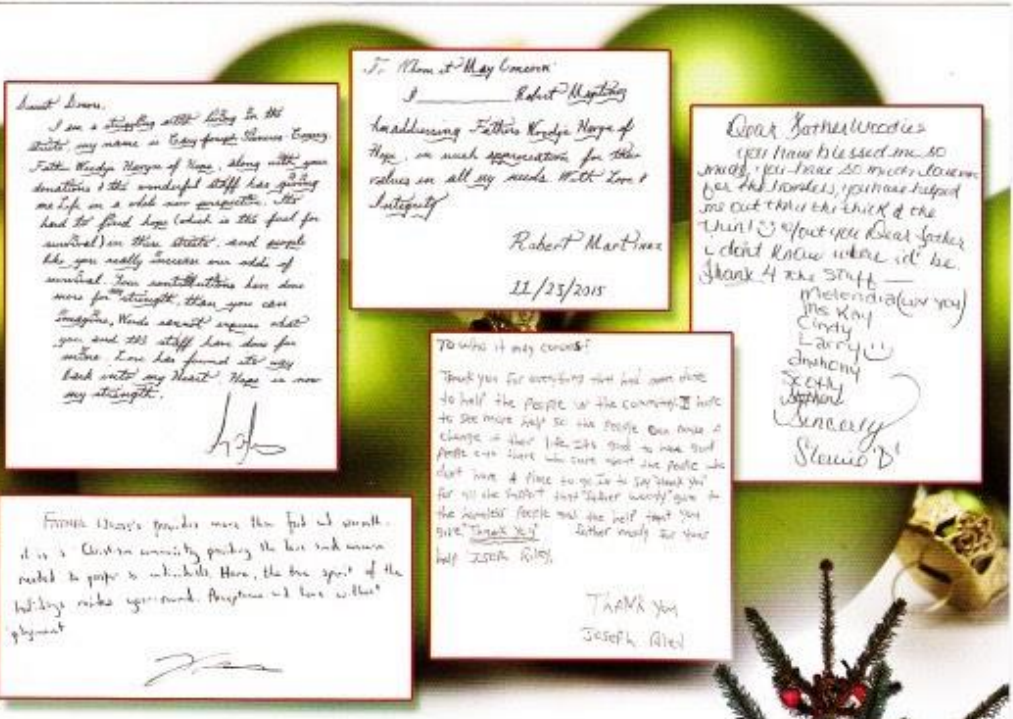 I am a struggling artist living in the
streets, my name is
Father Woody's Haven of Hope, along with your
donations & the wonderful staff has giving
me Life on a whole new perspective. It's
hard to find hope (which is the fuel for
survival) in these streets. and people
like you really increase our odds of
survival. Your contributions have done
more for my strength, than you can
imagine, Words cannot express what
you and this staff have done for
Love has found its way
back into my Heart. Hope is now
my strength.
To Whom it May Concern
I Robert Martinez
addressing Fathers Woodys Haven of
Hope, in much appreciation for their
values in all my needs. With Love &
Integrity
Robert Martinez
11/23/2015
Dear Father Woodies
you have blessed me so
much, you have so much love
for the homeless, you have helped
me out thru the thick & the
thin! w/out you Dear father
i dont know where id' be.
Thank 4 the Staff
Melendia (luv you)
Ms Kay
Cindy
Larry
Anthony
Scotty
Stephens
Sincerly
"D"
To who it may concern
Thank you for everything that had been done
to help the people in the community. I hope
to see more help so the people can make a
change in their life. Its good to have good
people out there who care about the people who
don't have a place to go. Is to say "thank you"
for all the support that "father woody" give to
the homeless people and the help that you
give "Thank You" father woody for your
help Joseph Riley.
Thank you
Joseph Riley
Father Woody's provides more than food and warmth.
it is a Christian community providing the love and
needed to as individuals. Here, the true spirit of the
holidays resides year-round. Acceptance and love without